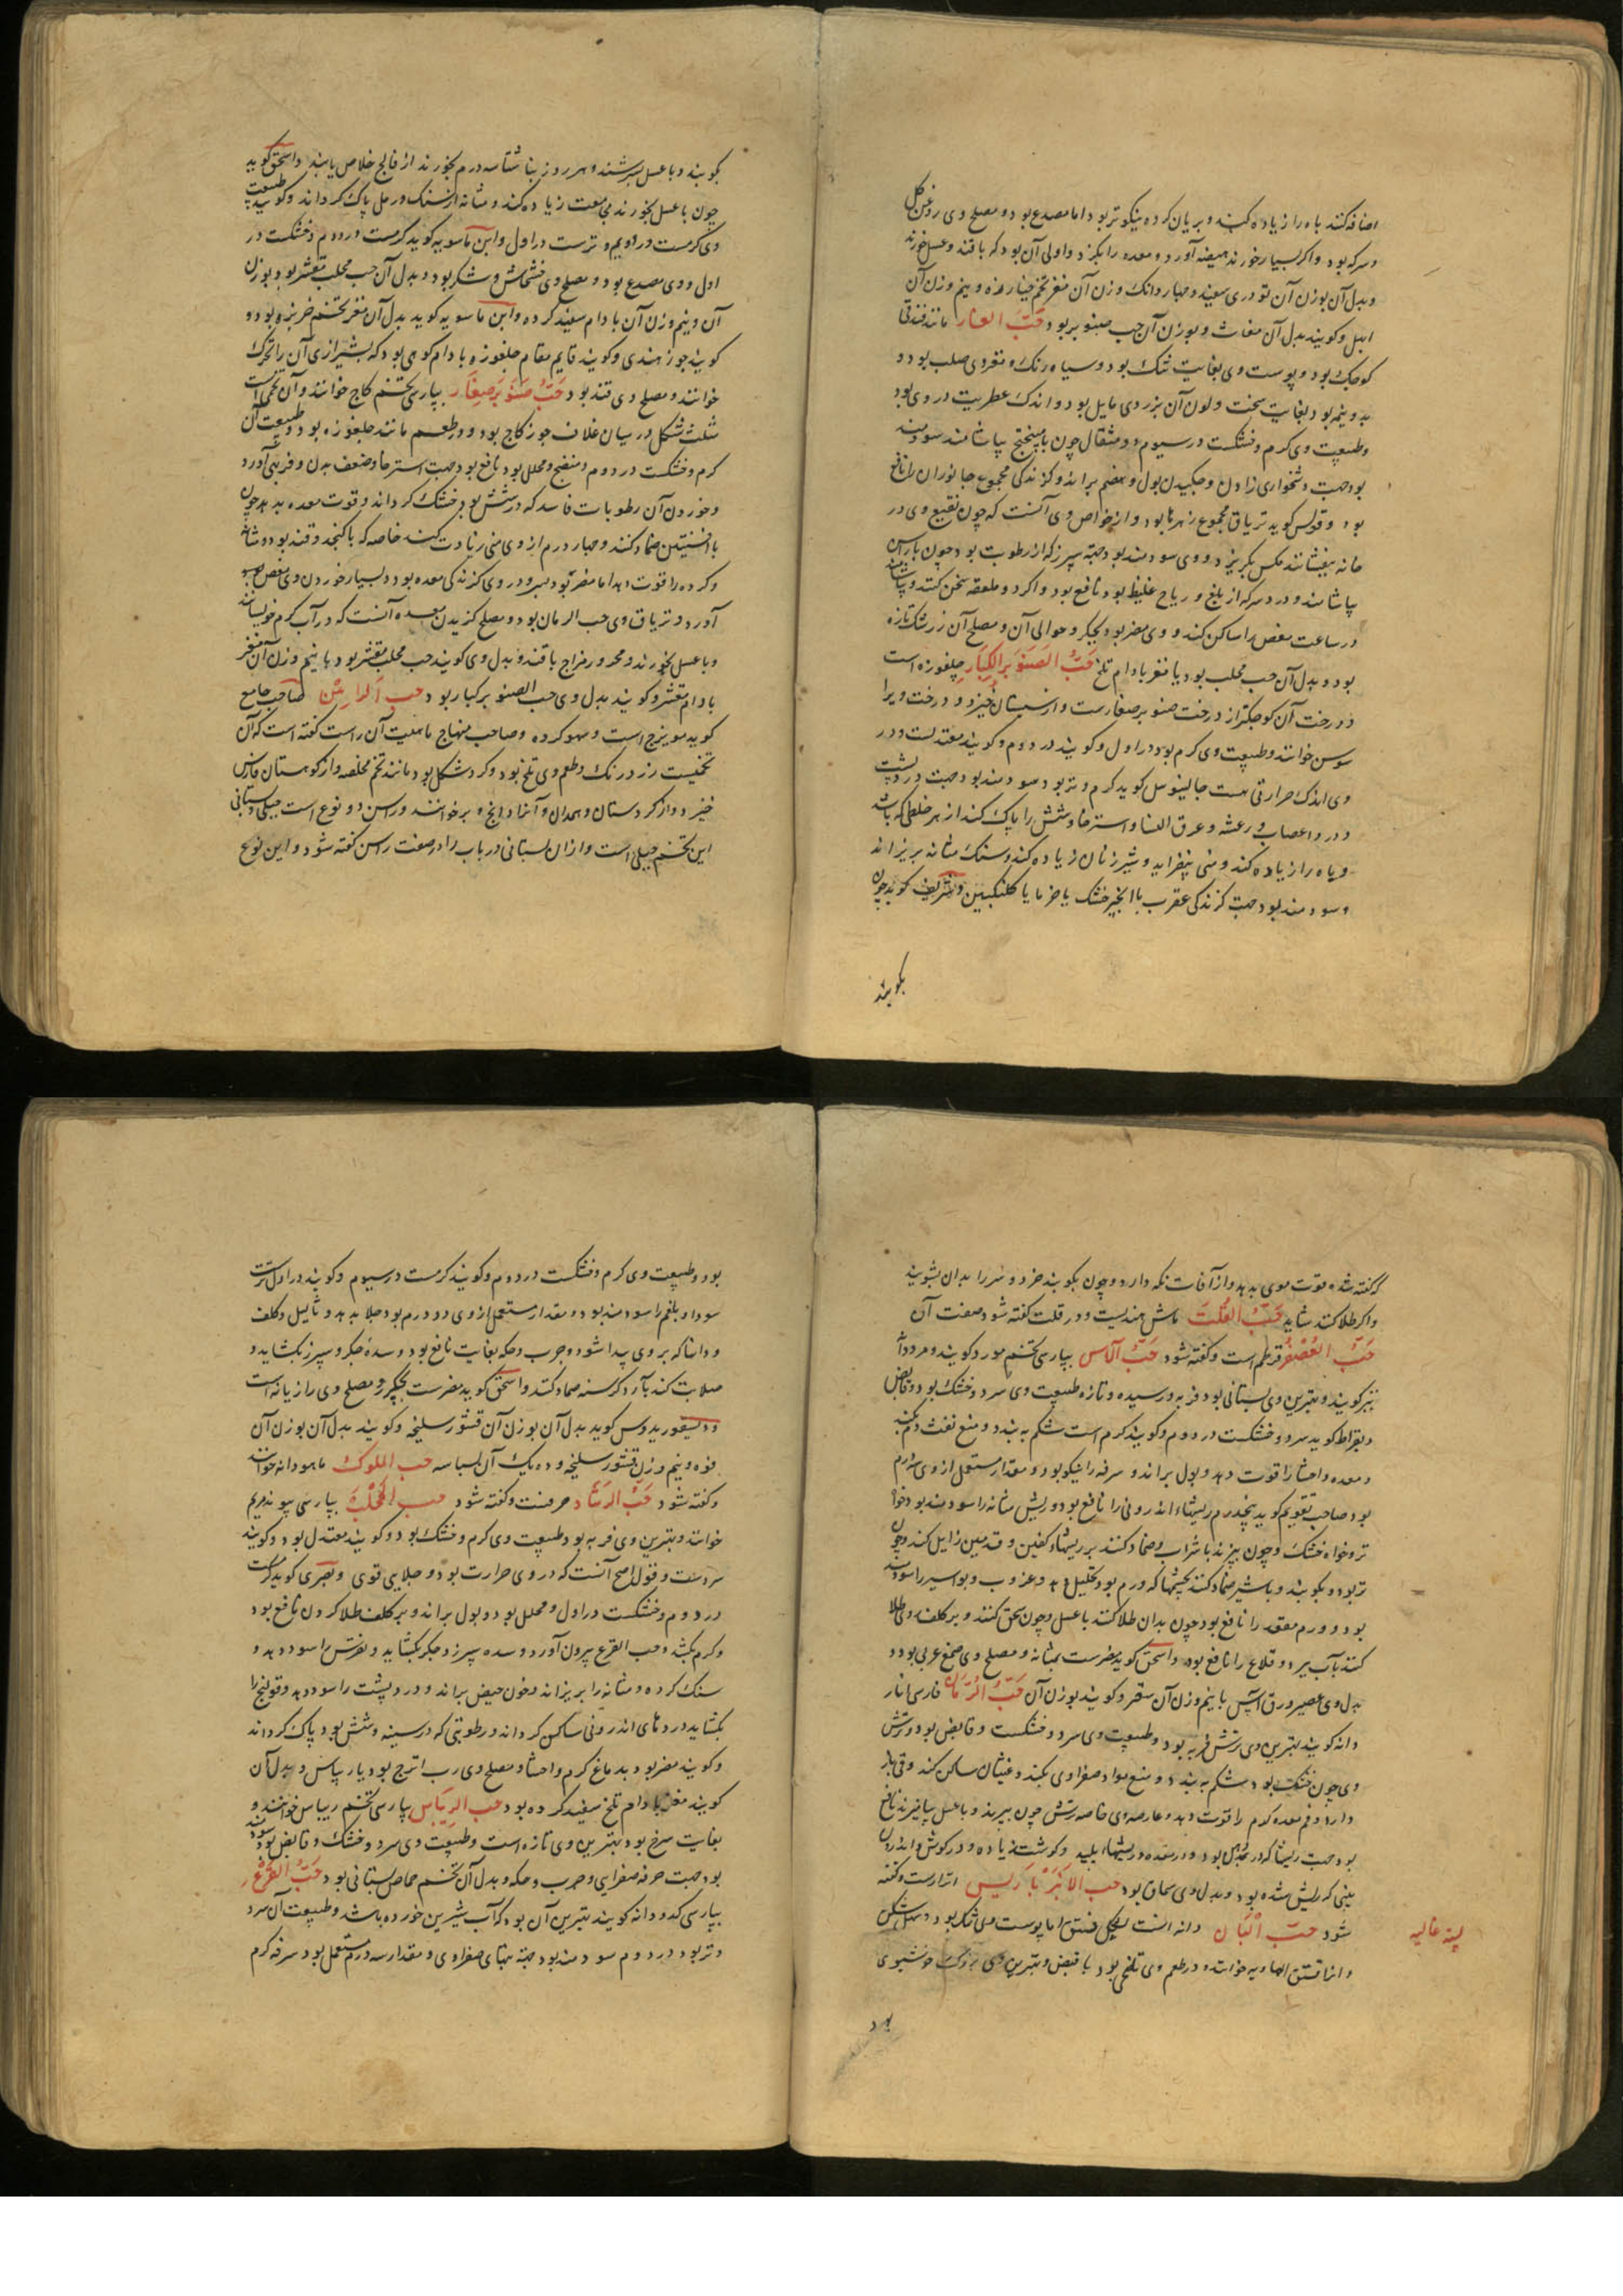 اضافه کنند باه را زیاده کند و بریان کرده نیکوتر بود اما مصدع بود و مصلح وی روغن کل
و سرکه بود و اکر بسیار خورند هیضه آورد و معده را بکزد و اولی آن بود که با قند و عسل خورند
و بدل آن بوزن آن تودری سفید و چهار دانک وزن آن مغز تخم خیارزه و نیم وزن آن
ابهل و کویند بدل آن مغاث و بوزن آن حب صنوبر بود حَبّ الغار مانند فندقی
کوچک بود و پوست وی بغایت تنک بود و سیاه رنک و مغز وی صلب بود و
بدو نیم بود بغایت سخت و لون آن بزردی مایل بود و اندک عطریت در وی بود
و طبیعت وی کرم و خشکست در سیوم دو مثقال چون با میپختج بیاشامند سودمند
بود جهت دشخواری زادن و چکیدن بول و هضم براند و کزندکی مجموع جانوران را نافع
بود و قولس کوید تریاق مجموع زهرها بود و از خواص وی آنست که چون نقیع وی در
خانه بیفشانند مکس بکریزد و وی سودمند بود جهة سپرز که از رطوبت بود چون با راسن
بیاشامند و درد سر که از بلغ و ریاح غلیظ بود نافع بود و اکر دو ملعقه سحن کنند و بیاشامند
در ساعت مغص را ساکن کند و وی مضر بود بجکر و حوالی آن و مصلح آن زرشک تازه
بود و بدل آن حب محلب بود یا مغز بادام تلخ حَبُّ الصَنَوبَر الکِبَار چلغوزه است
و درخت آن کوچکتر از درخت صنوبر صغارست و از سیستان خیزد و درخت ویرا
سوسن خوانند و طبیعت وی کرم بود در اول و کویند در دوم و کویند معتدلست و در
وی اندک حرارتی هست جالینوس کوید کرم و تر بود سودمند بود جهت درد پشت
و درد اعصاب و رعشه و عرق النسا و استرخا و شش را پاک کند از هر خلطی که باشد
و باه را زیاده کند و منی بیفزاید و شیر زنان زیاده کند و سنک مثانه بریزاند
و سودمند بود جهت کزندکی عقرب با انجیر خشک یا خرما یا کلنکبین و شریف کوید چون
بکوبند
بکوبند و با عسل بسرشند و هر روز بناشتا سه درم بخورند از فالج خلاص یابند و اسحق کوید
چون با عسل بخورند مجامعت زیاده کند و مثانه از سنک و رمل پاک کرداند و کویند طبیعت
وی کرمست در دویم و ترست در اول و ابن ماسویه کوید کرمست در دوم و خشکست در
اول و وی مصدع بود و مصلح وی خشخاش و شکر بود و بدل آن حب محلب مقشر بود بوزن
آن و نیم وزن آن بادام سفید کرده و ابن ماسویه کوید بدل آن مغز تخم خربزه بود و
کویند جوز هندی و کویند قایم مقام چلغوزه بادام کوهی بود که بشیرازی آن را تخرک
خوانند و مصلح وی قند بود حَبُّ صَنَوبَر صِغَار بپارسی تخم کاج خوانند و آن تخمیست
مثلث شکل در میان غلاف جوز کاج بود و در طعم مانند چلغوزه بود و طبیعت آن
کرم و خشکست در دوم و منضج و محلل بود نافع بود جهت استرخا و ضعف بدن و فربهی آورد
و خوردن آن رطوبات فاسد که در شش بود خشک کرداند و قوت معده بدهد چون
با افسنتین ضماد کنند و چهار درم از وی منی زیادت کند خاصه که با کنجد و قند بود و مثانه
و کرده را قوت دهد اما مضر بود بسر و در وی کزندکی معده بود و بسیار خوردن وی مغص
آورد و تریاق وی حب الرمان بود و مصلح کزیدن معده آنست که در آب کرم خویسانند
و با عسل بخورند و محرور مزاج با قند و بدل وی کویند حب محلب مقشر بود با نیم وزن آن مغز
بادام مقشر و کویند بدل وی حب الصنوبر کبار بود حب الراسن صاحب جامع
کوید مویزج است و سهو کرده و صاحب منهاج ماهیت آن راست کفته است که آن
تخمیست زرد رنک و طعم وی تلخ بود و کرد شکل بود مانند تخم مخلصه و از کوهستان فارس
خیزد و از کردستان و همدان و آنرا دانج ابروج خوانند و راسن دو نوع است جبلی و بستانی
این تخم جبلی است و ازان بستانی در باب را در صفت راسن کفته شود و این نوع
که کفته شد قوت موی بدهد و از آفات نکه دارد و چون بکوبند خرد و سر را بدان بشویند
و اکر طلا کنند شاید حَبُّ القُلت ماش هندیست و در قلت کفته شود صفت آن
حَبُّ العُصفُر قرطم است و کفته شود حَبُّ الآس بپارسی تخم مورد کویند و مرددانه
نیز کویند و بهترین وی بستانی بود فربه و رسیده و تازه طبیعت وی سرد و خشک بود و قابض
و بقراط کوید سرد و خشکست در دوم و کویند کرم است شکم ببندد و منع نفث دم بکند
و معده و احشا را قوت دهد و بول براند و سرفه را نیکو بود و مقدار مستعمل از وی سه درم
بود صاحب تقویم کوید پنجدرم ریشهاء اندرونی را نافع بود و ریش مثانه را سودمند بود خواه
تر و خواه خشک و چون بپزند با شراب و ضماد کنند بر ریشهاء کفین و قدمین زایل کند و چون
تر بود و بکوبند و با شیر ضماد کنند بچشمها که ورم بود تحلیل دهد و غروب و بواسیر را سودمند
بود و ورم مقعد را نافع بود چون بدان طلا کنند با عسل و چون سحق کنند و بر کلف روی طلا
کنند بآب ببرد و قلاع را نافع بود و اسحق کوید مضرست بمثانه و مصلح وی صمغ عربی بود و
بدل وی عصیر ورق آس با نیم وزن آن سقر و کویند بوزن آن حَبُّ الرُمّان فارسی انار
دانه کویند بهترین وی ترش فربه بود و طبیعت وی سرد و خشکست و قابض بود و ترش
وی چون خشک بود شکم ببندد و منع مواد صفراوی بکند و غثیان ساکن کند و قی باز
دارد و فم معده کرم را قوت دهد و عصاره وی خاصه ترش چون بپزند و با عسل بیامیزند نافع
بود جهت ریشها که در دهن بود و در معده و ریشهاء پلید و کوشت زیاده و در کوش و اندرون
بینی که ریش شده بود و بدل وی سماق بود حب الاَنبَربَاریس اترارست و کفته
شود حبّ البَان دانه است بشکل فستق اما پوست وی تنک بود و سهل شکن
پسته غالیه
و انرا فستق الهاویه خوانند و در طعم وی تلخی بود با قبض و بهترین وی بزرک خوشبوی
بود
بود و طبیعت وی کرم و خشکست در دوم و کویند کرمست در سیوم و کویند در اول ترست
سودا و بلغم را سودمند بود و مقدار مستعمل از وی دو درم بود جلا بدهد و ثآلیل و کلف
و دانها که بر روی پیدا شود و جرب و حکه بغایت نافع بود و سدهٔ جکر و سپرز بکشاید و
صلابت کند بآرد کرسنه ضماد کنند و اسحق کوید مضرست بجکر و مصلح وی رازیانه است
و دیسقوریدوس کوید بدل آن بوزن آن قشور سلیخه و کویند بدل آن بوزن آن
فوه و نیم وزن قشور سلیخه و ده یک آن بسباسه حب الملوک ماهودانه خوانند
و کفته شود حَبُّ الرشَاد حرفست و کفته شود حب المَحلَب بپارسی پیوند مریم
خوانند و بهترین وی فربه بود طبیعت وی کرم و خشک بود و کویند معتدل بود و کویند
سردست و قول اصح آنست که در وی حرارت بود و جلایی قوی و بصری کوید کرمست
در دوم و خشکست در اول و محلل بود و بول براند و بر کلف طلا کردن نافع بود
و کرم بکشد و حب القرع بیرون آورد و سده سپرز و جکر بکشاید و نقرس را سود دهد و
سنک کرده و مثانه را بریزاند و خون حیض براند و درد پشت را سود دهد و قولنج را
بکشاید دردهای اندرونی ساکن کرداند و رطوبتی که در سینه و شش بود پاک کرداند
و کویند مضر بود بدماغ کرم و احشا و مصلح وی رب اترج بود یا ریباس و بدل آن
کویند مغز بادام تلخ سفید کرده بود حب الریبَاس بپارسی تخم ریباس خوانند و
بغایت سرخ بود بهترین وی تازه است و طبیعت وی سرد و خشک و قابض بود سودمند
بود جهت حرقه صفرایی و جرب و حکه و بدل آن تخم حماض بستانی بود حَبُّ القَرع
بپارسی کدو دانه کویند بهترین آن بود که آب شیرین خورده باشد و طبیعت آن سرد
و تر بود در دوم سودمند بود جهة تبهای صفراوی و مقدار سه درم مستعمل بود سرفه کرم